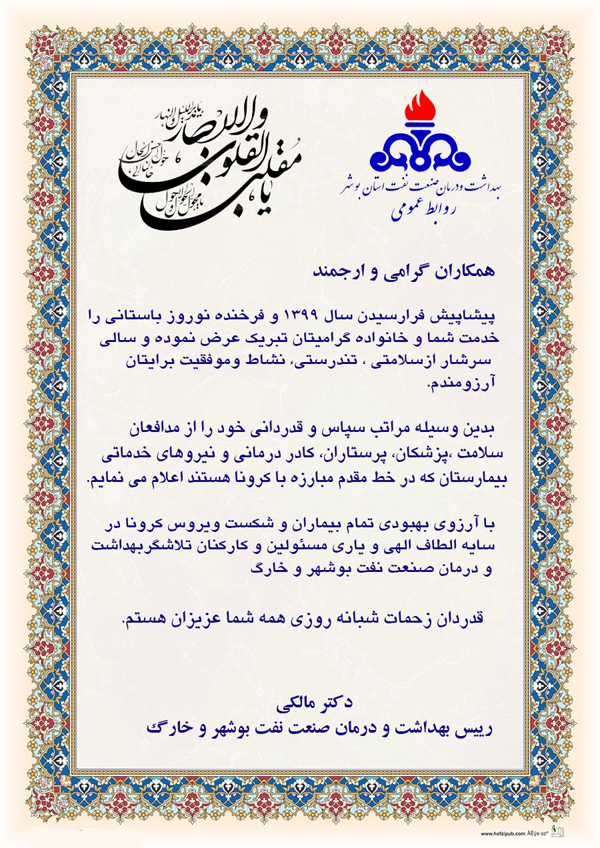 یا مقلب القلوب والابصار
یا مدبر اللیل والنهار
یا محول الحول والاحوال
حول حالنا الی احسن الحال
بهداشت و درمان صنعت نفت استان بوشهر
روابط عمومی
همکاران گرامی و ارجمند
پیشاپیش فرارسیدن سال ۱۳۹۹ و فرخنده نوروز باستانی را
خدمت شما و خانواده گرامیتان تبریک عرض نموده و سالی
سرشار ازسلامتی ، تندرستی، نشاط وموفقیت برایتان
آرزومندم.
بدین وسیله مراتب سپاس و قدردانی خود را از مدافعان
سلامت ،پزشکان، پرستاران، کادر درمانی و نیروهای خدماتی
بیمارستان که در خط مقدم مبارزه با کرونا هستند اعلام می نمایم.
با آرزوی بهبودی تمام بیماران و شکست ویروس کرونا در
سایه الطاف الهی و یاری مسئولین و کارکنان تلاشگربهداشت
و درمان صنعت نفت بوشهر و خارگ
قدردان زحمات شبانه روزی همه شما عزیزان هستم.
دکتر مالکی
رییس بهداشت و درمان صنعت نفت بوشهر و خارگ
www.hefzipub.com